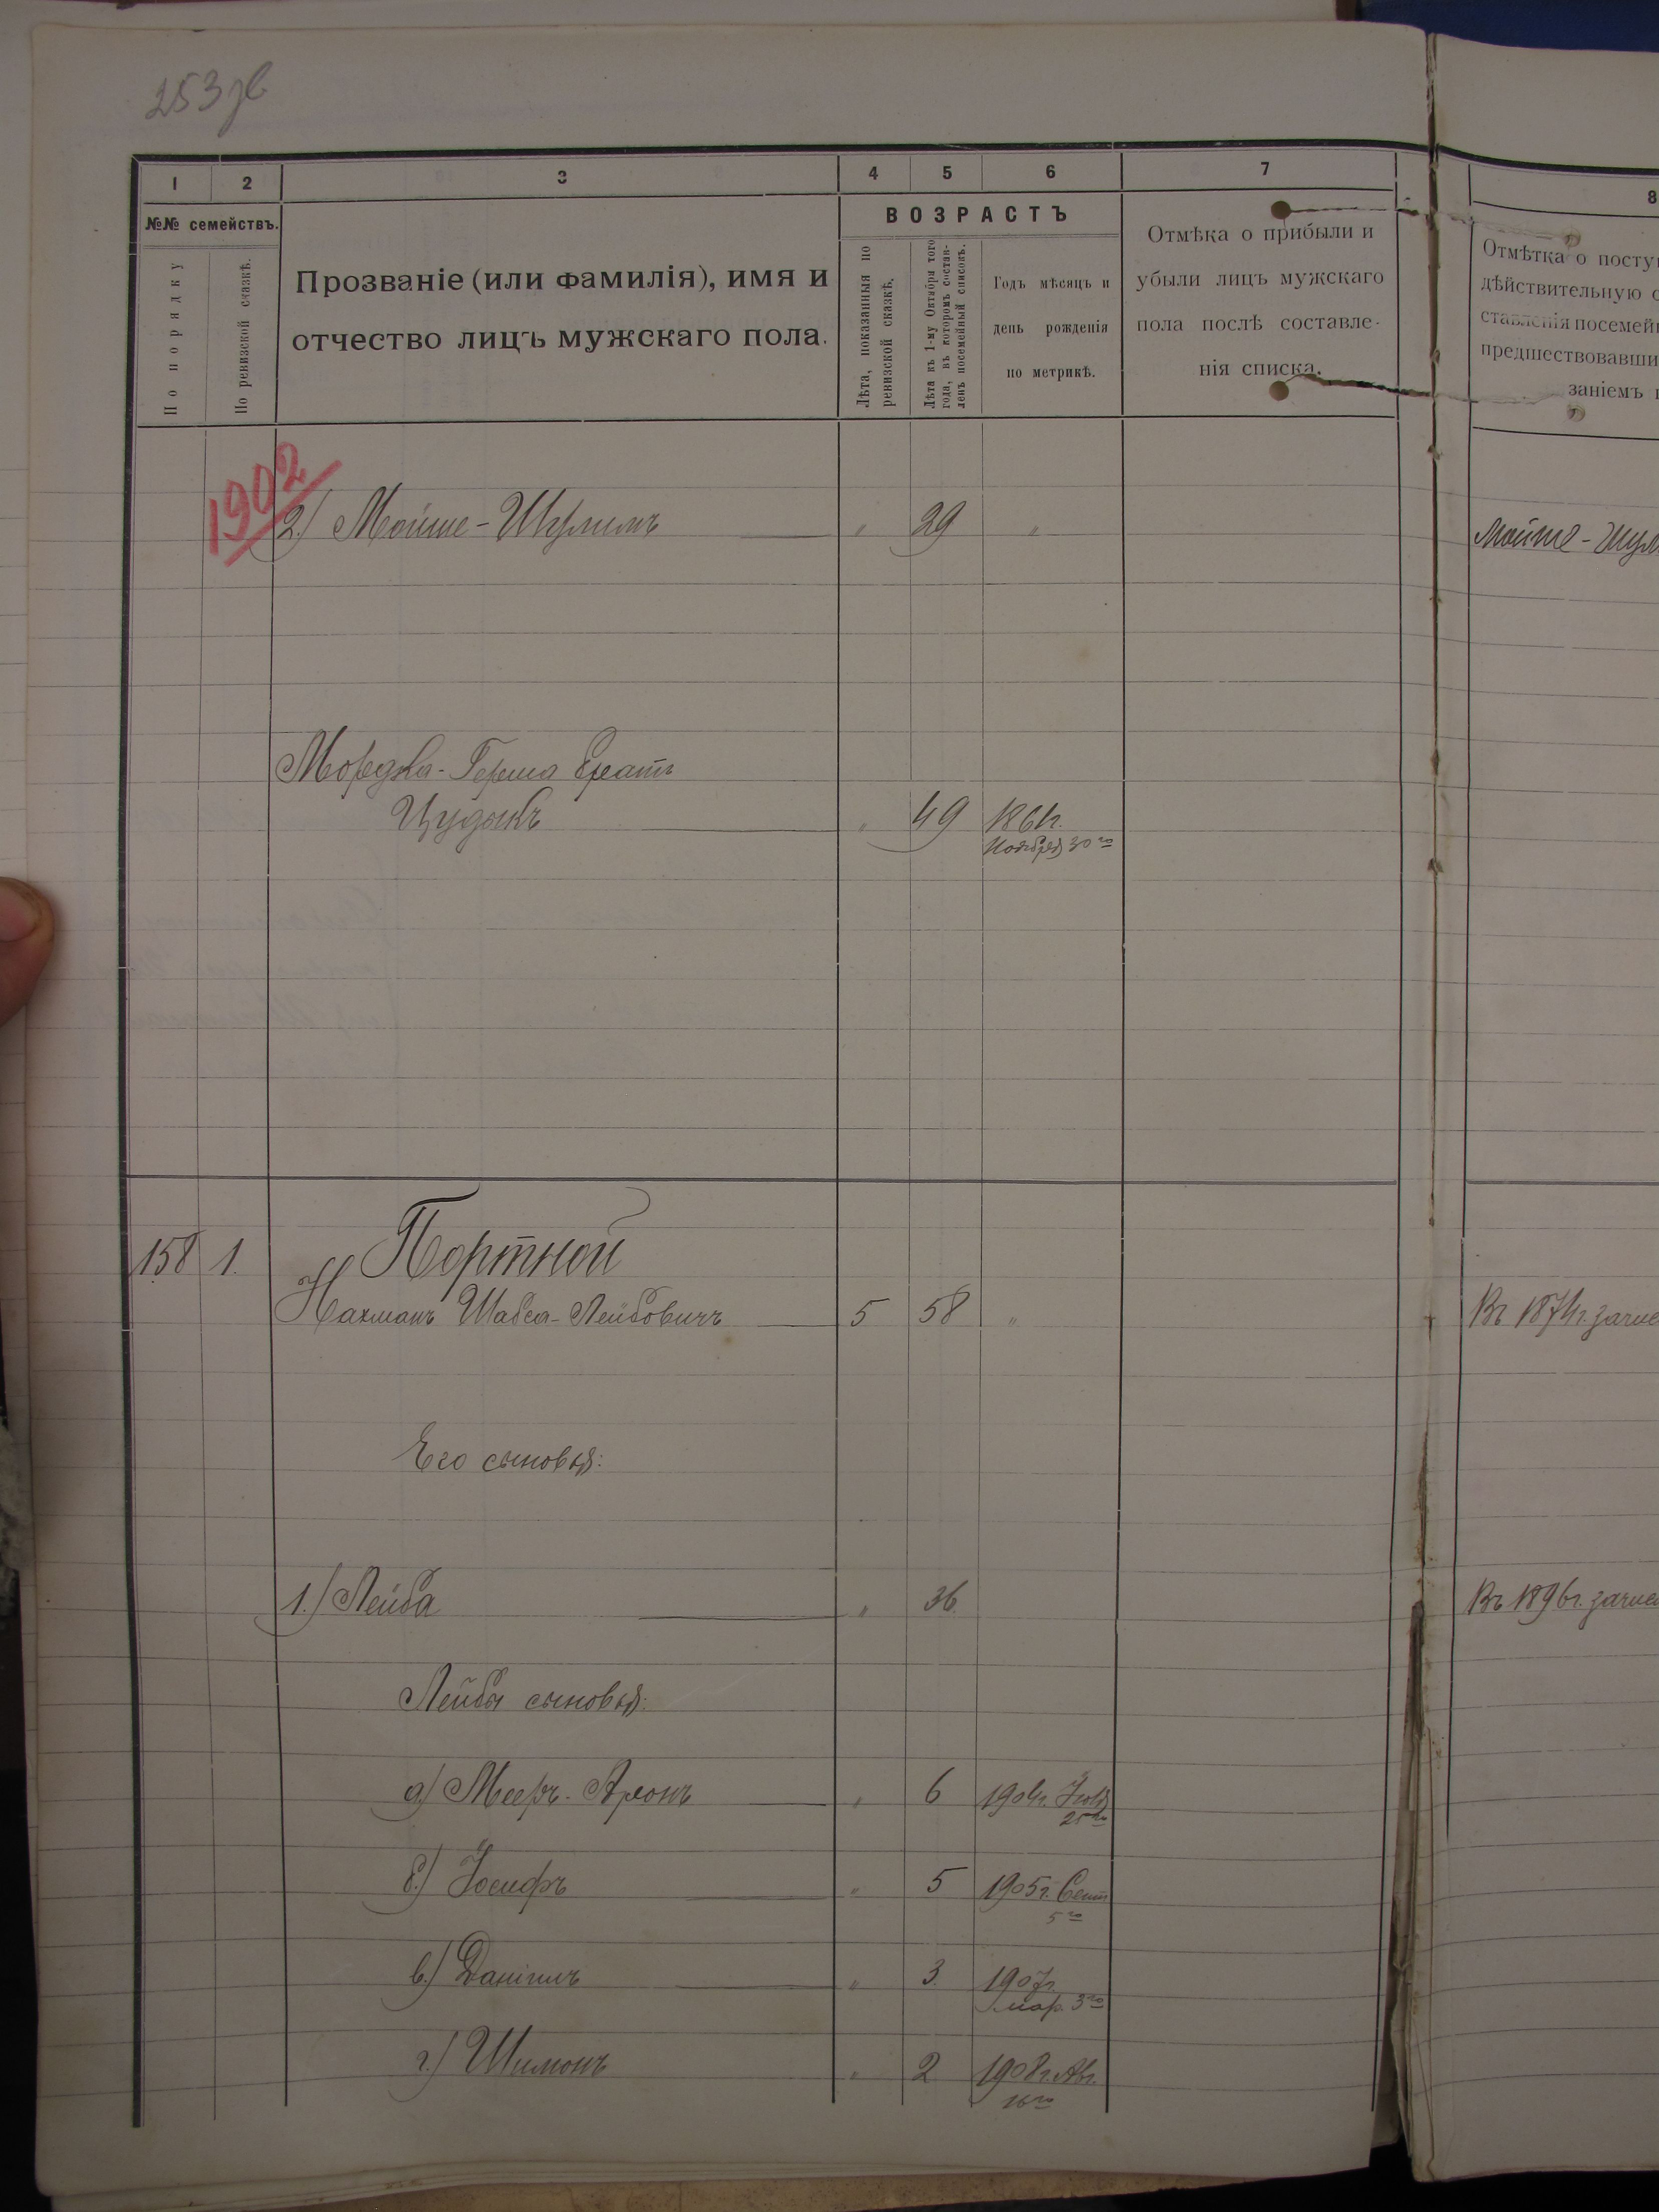 253зв
1 2 3 4 5 6 7 8
№№ семействъ.
По порядку
По ревизской сказкѣ.
Прозваніе (или фамилія), имя и
отчество лицъ мужскаго пола.
ВОЗРАСТЪ
Лѣта, показанныя по
ревизской сказкѣ.
Лѣта къ 1-му Октября того
года, въ которомъ состав-
ленъ посемейный списокъ.
Годъ мѣсяцъ и
день рожденія
по метрикѣ.
Отмѣка о прибыли и
убыли лицъ мужскаго
пола послѣ составле-
нія списка.
Отмѣтка о посту
дѣйствительную с
ставленія посемей
предшествовавши
заніемъ
1902
2.) Мойше-Шулимъ " 29 "
Мойше-Шул
Мордка-Герша братъ
Цудикъ " 49 1861г.
Ноября 30го
158 1. Портной
Нахманъ Шабса-Лейбовичъ 5 58 "
Въ 1874г. зачис
Его сыновья:
1.) Лейба " 36.
Въ 1896г. зачис
Лейбы сыновья:
а) Мееръ-Аронъ " 6 1904г. Іюля
25го
б.) Іосифъ " 5 1905г. Сент
5го
в.) Даніилъ " 3. 1907г.
мар. 3го
г.) Шимонъ " 2 1908г. Авг.
16го